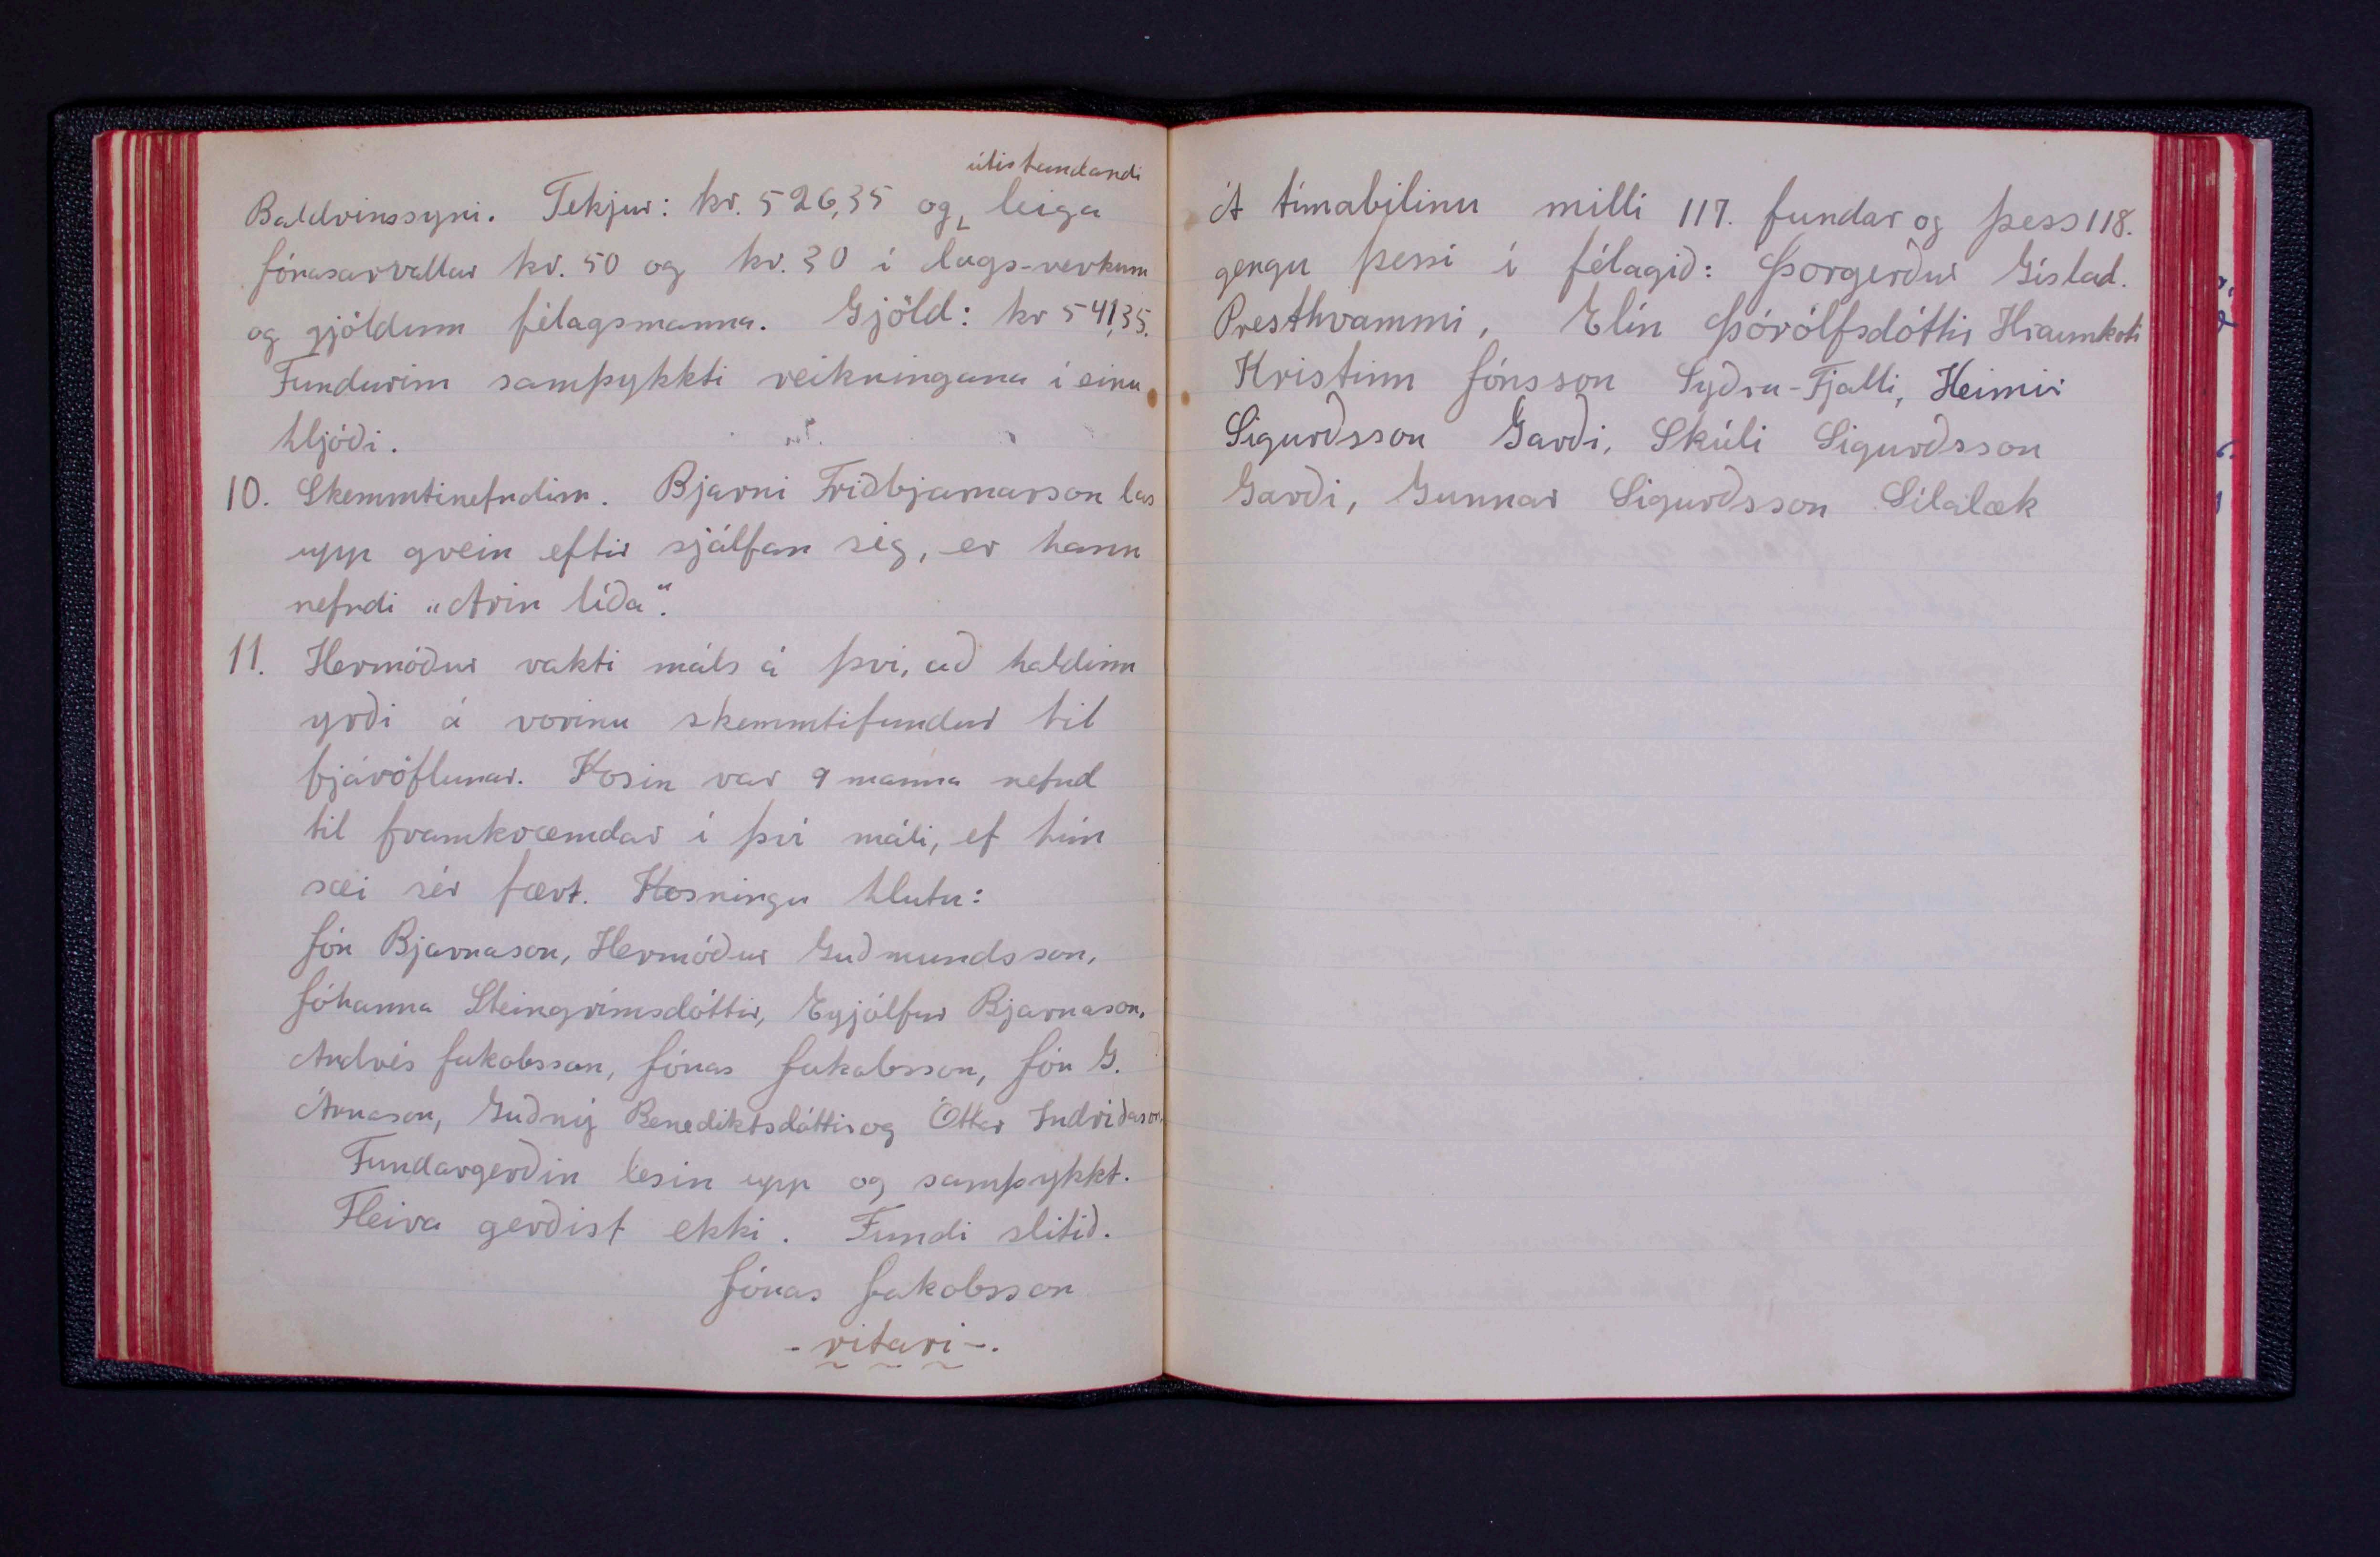 útistandandi
Baldvinssyni. Tekjur: kr. 526,35 og leiga
Jónasarvallar kr. 50 og kr. 30 í dags-verkum
og gjöldum félagsmanna. Gjöld: kr 541,35.
Fundurinn samþykkti reikningana í einu
hljóði.
10. Skemmtinefndin. Bjarni Friðbjarnarson las
upp grein eftir sjálfan sig, er hann
nefndi „Árin líða“.
11. Hermóður vakti máls á því, að haldinn
yrði á vorinu skemmtifundur til
fjáröflunar. Kosin var 9 manna nefnd
til framkvæmdar í því máli, ef hún
sæi sér fært. Kosningu hlutu:
Jón Bjarnason, Hermóður Guðmundsson,
Jóhanna Steingrímsdóttir, Eyjólfur Bjarnason,
Andrés Jakobsson, Jónas Jakobsson, Jón G.
Árnason, Guðný Benediktsdóttir og Óttar Indriðason.
Fundargerðin lesin upp og samþykkt.
Fleira gerðist ekki. Fundi slitið.
Jónas Jakobsson
- ritari -.
Á tímabilinu milli 117. fundar og þess 118.
gengu þessi í félagið: Þorgerður Gíslad.
Presthvammi, Elín Þórólfsdóttir Hraunkoti
Kristinn Jónsson Syðra-Fjalli, Heimir
Sigurðsson Garði, Skúli Sigurðsson
Garði, Gunnar Sigurðsson Sílalæk